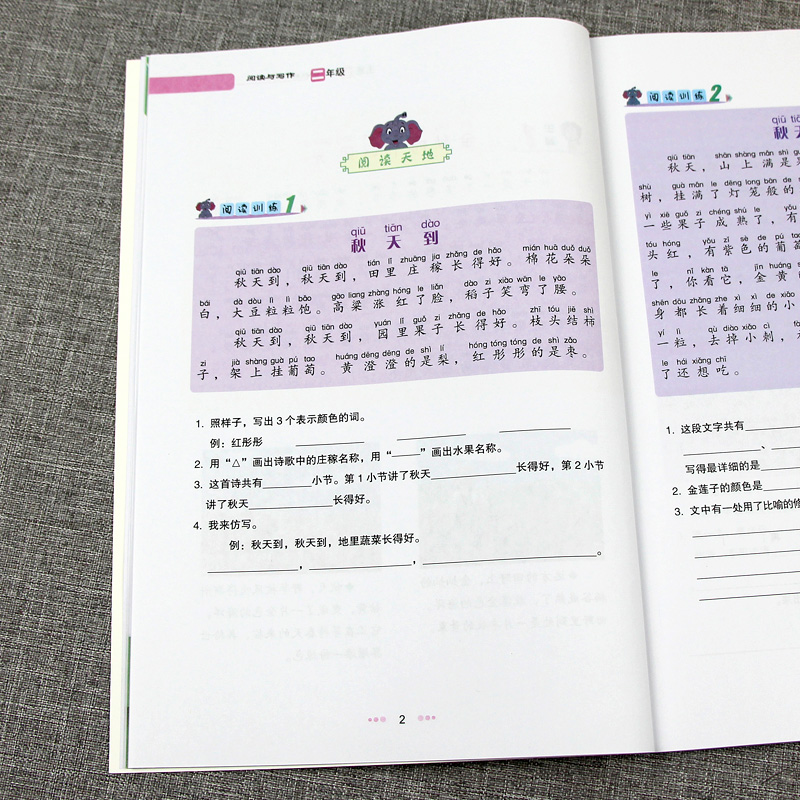 阅读与写作 二年级
阅读天地
阅读训练1
qiū tiān dào
秋天到
qiū tiān dào qiū tiān dào tián lǐ zhuāng jia zhǎng de hǎo mián huā duǒ duǒ
秋天到，秋天到，田里庄稼长得好。棉花朵朵
bái dà dòu lì lì bǎo gāo liang zhàng hóng le liǎn dào zi xiào wān le yāo
白，大豆粒粒饱。高粱涨红了脸，稻子笑弯了腰。
qiū tiān dào qiū tiān dào yuán lǐ guǒ zi zhǎng de hǎo zhī tóu jiē shì
秋天到，秋天到，园里果子长得好。枝头结柿
zi jià shàng guà pú tao huáng dēng dēng de shì lí hóng tóng tóng de shì zǎo
子，架上挂葡萄。黄澄澄的是梨，红彤彤的是枣。
1. 照样子，写出3个表示颜色的词。
例：红彤彤 ________ ________ ________
2. 用“△”画出诗歌中的庄稼名称，用“____”画出水果名称。
3. 这首诗共有________小节。第1小节讲了秋天________长得好，第2小节
讲了秋天________长得好。
4. 我来仿写。
例：秋天到，秋天到，地里蔬菜长得好。
________，________，________。
2
阅读训练2
qiū tiān
秋天
qiū tiān shān shàng mǎn shì guǒ
秋天，山上满是
shù guà mǎn le dēng lóng bān de
树，挂满了灯笼般的
yì xiē guǒ zi chéng shú le yǒu
一些果子成熟了，有
tóu hóng yǒu zǐ sè de pú tao
头红，有紫色的葡萄
le nǐ kàn tā jīn huáng
了，你看它，金黄
shēn dōu zhǎng zhe xì xì de xiǎo
身都长着细细的小
yí lì qù diào xiǎo cì
一粒，去掉小刺，
le hái xiǎng chī
了还想吃。
1. 这段文字共有________
________、________
写得最详细的是________
2. 金莲子的颜色是________
3. 文中有一处用了比喻的修